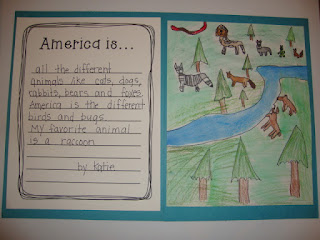 America is...
all the different
animals like cats, dogs,
rabbits, bears and foxes.
America is the different
birds and bugs.
My favorite animal
is a raccoon
by Katie